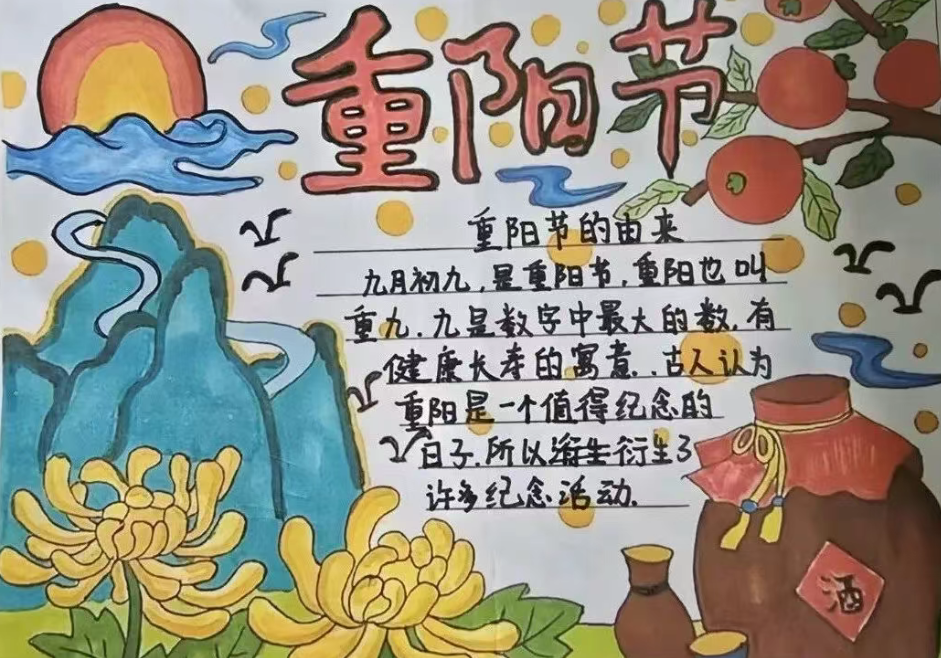 重阳节
重阳节的由来
九月初九,是重阳节,重阳也叫
重九.九是数字中最大的数,有
健康长寿的寓意.,古人认为
重阳是一个值得纪念的
日子.所以衍生了
许多纪念活动.
酒